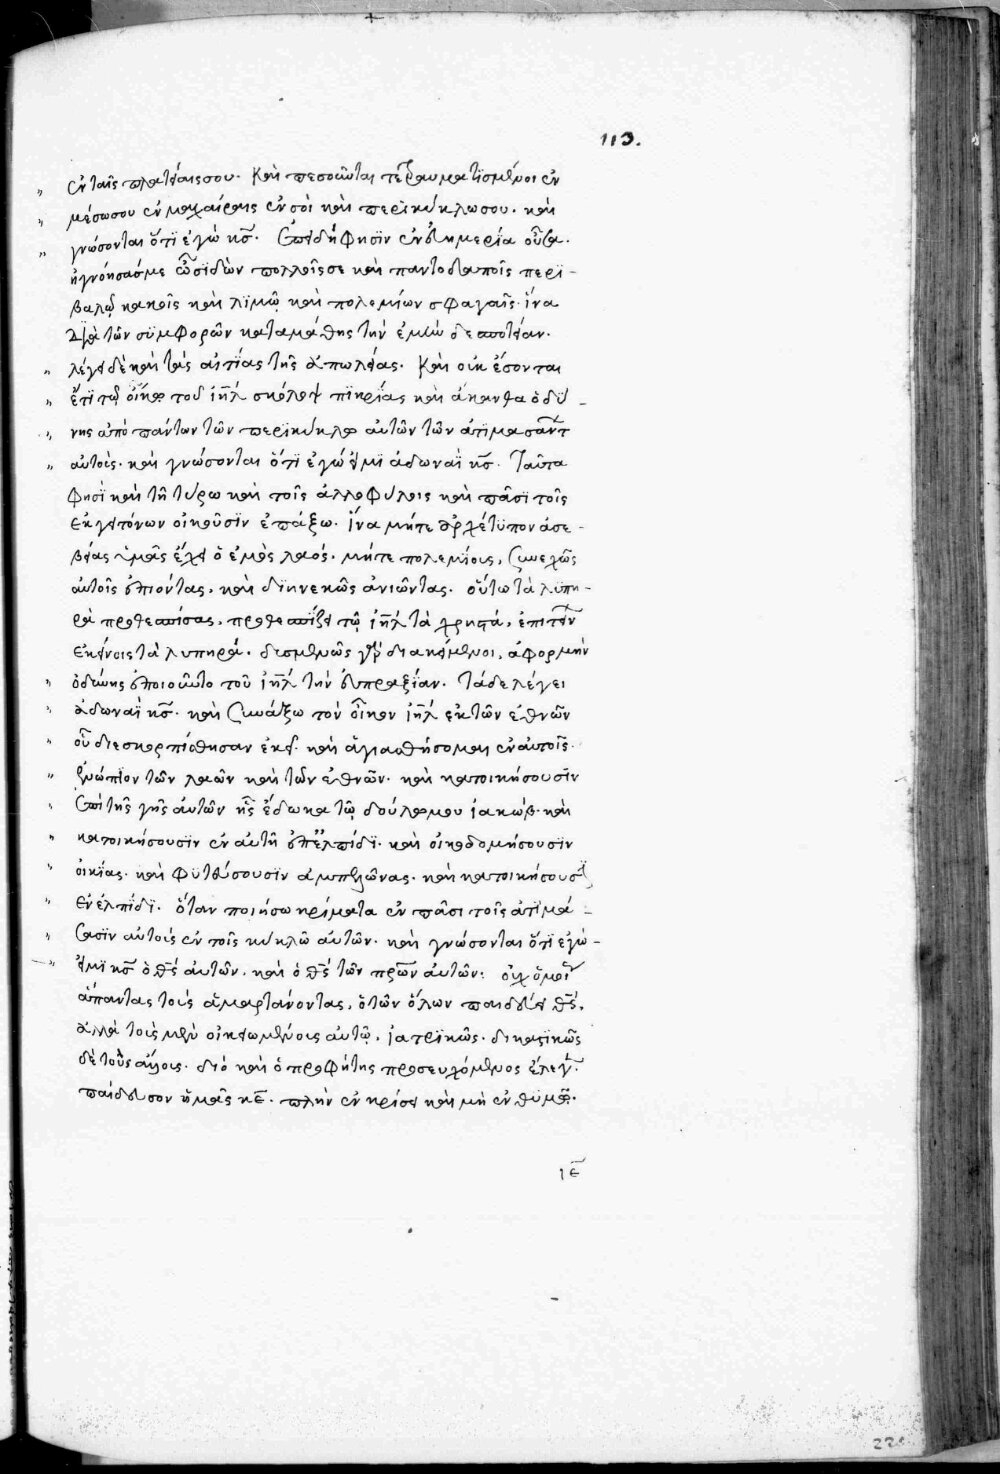 113.
" ἐν ταῖς πλατείαις σου. καὶ πεσοῦνται τετραυματισμένοι ἐν
" μέσω σου ἐν μαχαίραις ἐν σοὶ καὶ περικύκλω σου. καὶ
" γνώσονται ὅτι ἐγὼ κς̅. Ἐπειδή φησιν ἐν εὐημερία οὖσα
ἠγνόησάς με ὡς ἰδὼν πολλοῖς σε καὶ παντοδαποῖς περι-
βαλῶ κακοῖς καὶ λιμῶ καὶ πολεμίων σφαγαῖς. ἵνα
διὰ τῶν συμφορῶν καταμάθης τὴν ἐμὴν δεσποτείαν.
" λέγει δὲ καὶ τὰς αἰτίας τῆς ἀπωλείας. Καὶ οὐκ ἔσονται
" ἔτι τῶ οἴκω τοῦ ιη̅λ σκόλοψ πικρίας καὶ ἄκανθα ὀδύ-
" νης ἀπὸ πάντων τῶν περικύκλω αὐτῶν τῶν ἀτιμασάντ
" αὐτούς. καὶ γνώσονται ὅτι ἐγώ εἰμι ἀδωναῒ κς̅. Ταῦτα
φησὶ καὶ τῆ τύρω καὶ τοῖς ἀλλοφύλοις καὶ πᾶσι τοῖς
ἐκ γειτόνων οἰκοῦσιν ἐπάξω. ἵνα μήτε ἀρχέτυπον ἀσε-
βείας ὑμᾶς ἔχη ὁ ἐμὸς λαός. μήτε πολεμίους, συνεχῶς
αὐτοῖς ἐπιόντας, καὶ διηνεκῶς ἀνιῶντας. οὕτω τὰ λυπη-
ρὰ προθεσπίσας, προθεσπίζει τῶ ιη̅λ τὰ χρηστά, ἐπὶ
ἐκείνοις τὰ λυπηρά. δυσμενῶς γὰρ διακείμενοι, ἀφορμὴν
" ὀδύνης ἐποιοῦντο τοῦ ιη̅λ τὴν εὐπραξίαν. Τάδε λέγει
" ἀδωναῒ κς̅. καὶ συνάξω τὸν οἶκον ιη̅λ ἐκ τῶν ἐθνῶν
" οὗ διεσκορπίσθησαν ἐκεῖ. καὶ ἁγιασθήσομαι ἐν αὐτοῖς
" ἐνώπιον τῶν λαῶν καὶ τῶν ἐθνῶν. καὶ κατοικήσουσιν
" ἐπὶ τῆς γῆς αὐτῶν ἧς ἔδωκα τῶ δούλω μου ἰακώβ. καὶ
" κατοικήσουσιν ἐν αὐτῆ ἐπ' ἐλπίδι. καὶ οἰκοδομήσουσιν
" οἰκίας. καὶ φυτεύσουσιν ἀμπελῶνας. καὶ κατοικήσουσι
" ἐν ἐλπίδι. ὅταν ποιήσω κρίματα ἐν πᾶσι τοῖς ἀτιμά-
" σασιν αὐτοὺς ἐν τοῖς κύκλω αὐτῶν. καὶ γνώσονται ὅτι ἐγώ
" εἰμι κς̅ ὁ θς̅ αὐτῶν. καὶ ὁ θς̅ τῶν πρ̅ων αὐτῶν: οὐχ ὁμοί
ἅπαντας τοὺς ἁμαρτάνοντας, ὁ τῶν ὅλων παιδεύει θς̅,
ἀλλὰ τοὺς μὲν οἰκειωμένους αὐτῶ, ἰατρικῶς. δικαστικῶς
δὲ τοὺς ἄλλους. διὸ καὶ ὁ προφήτης προσευχόμενος ἔλεγ.
παίδευσον ἡμᾶς κε̅. πλὴν ἐν κρίσει καὶ μὴ ἐν θυμῶ.
ιε̅